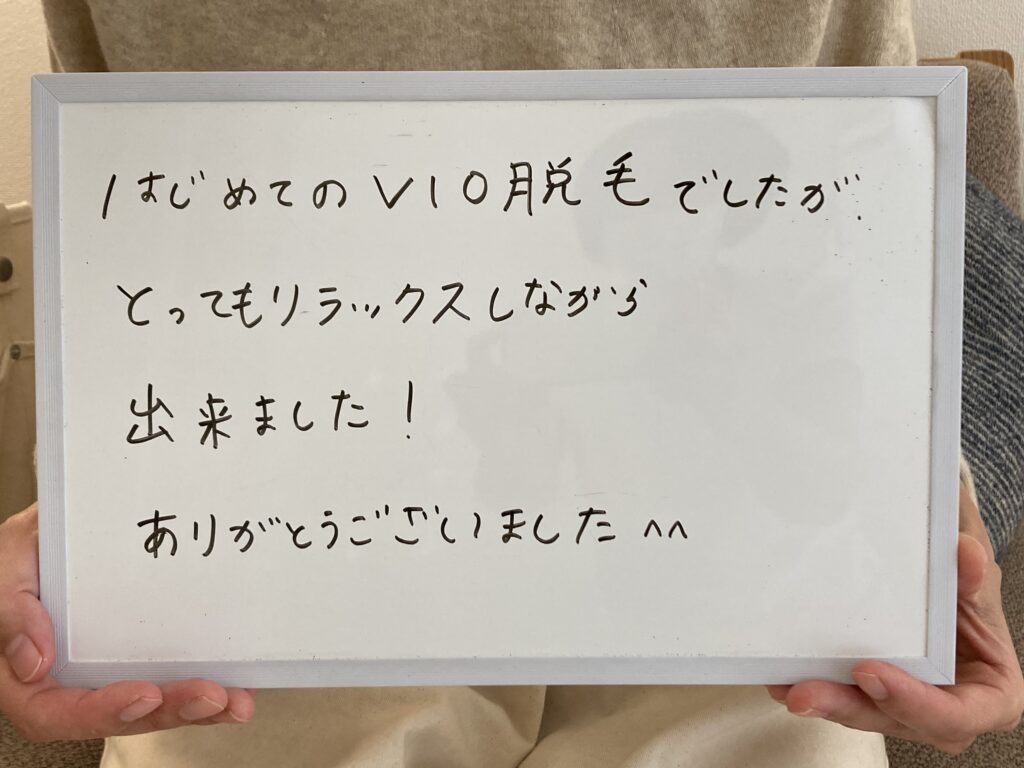 はじめてのVIO脱毛でしたが.
とってもリラックスしながら
出来ました！
ありがとうございました^^